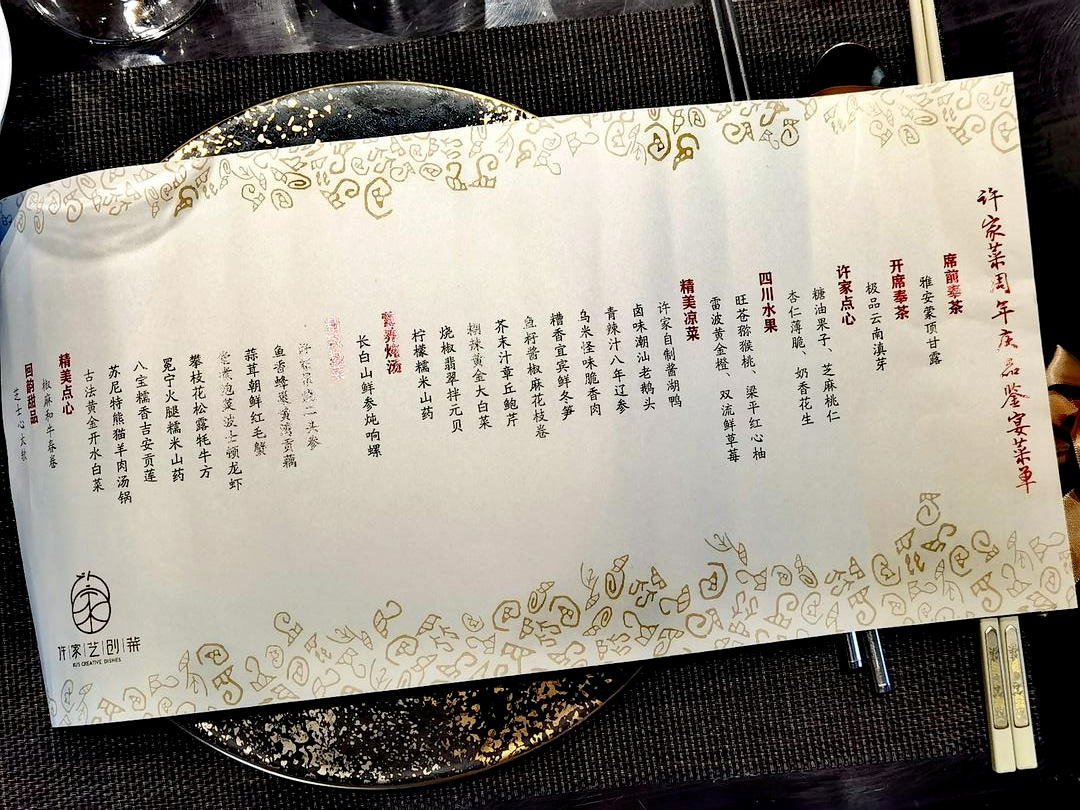 许家菜周年庆品鉴宴菜单
席前奉茶
雅安蒙顶甘露
开席奉茶
极品云南滇芽
许家点心
糖油果子、芝麻桃仁
杏仁薄脆、奶香花生
四川水果
旺苍猕猴桃、梁平红心柚
雷波黄金橙、双流鲜草莓
精美凉菜
许家自制酱湖鸭
卤味潮汕老鹅头
青辣汁八年辽参
乌米怪味脆香肉
糟香宜宾鲜冬笋
鱼籽酱椒麻花枝卷
芥末汁章丘鲍芹
糊辣黄金大白菜
烧椒翡翠拌元贝
柠檬糯米山药
营养炖汤
长白山鲜参炖响螺
许家
鱼香蜂窝黄湾贡藕
蒜茸朝鲜红毛蟹
波士顿龙虾
攀枝花松露牦牛方
冕宁火腿糯米山药
八宝糯香吉安贡莲
苏尼特熊猫羊肉汤锅
古法黄金开水白菜
精美点心
椒麻和牛春卷
回韵甜品
芝士心太软
许家艺创菜
XU'S CREATIVE DISHES